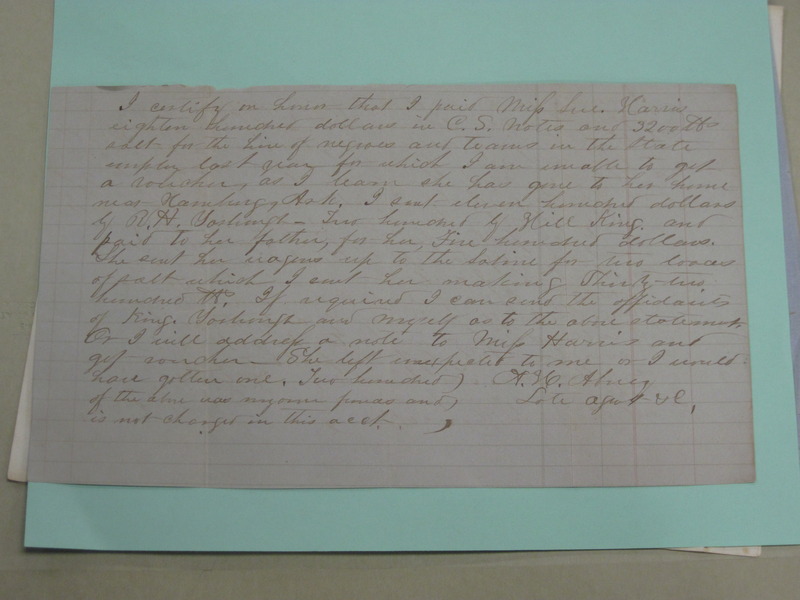 I certify on honor that I paid Miss Sue. Harris
eighteen hundred dollars in C. S. Notes and 3200 lbs
salt for the hire of negroes and teams in the State
employ last year for which I am unable to get
a voucher, as I learn she has gone to her home
near Hamburg, Ark. I sent eleven hundred dollars
by R. H. Yosbrugh – Two hundred by Hill King and
paid to her father, for her, Five hundred dollars.
She sent her wagons up to the Saline for two loads
of salt which I sent her making Thirty-two
hundred lbs. If required I can send the affidavits
of King, Yosbrugh and myself as to the above statement,
Or I will address a note to Miss Harris and
get voucher – She left unexpected to me or I would
have gotten one. Two hundred) A. H. Abney
of the above was my own funds and) Late agent &C,
is not charged in this acct. )